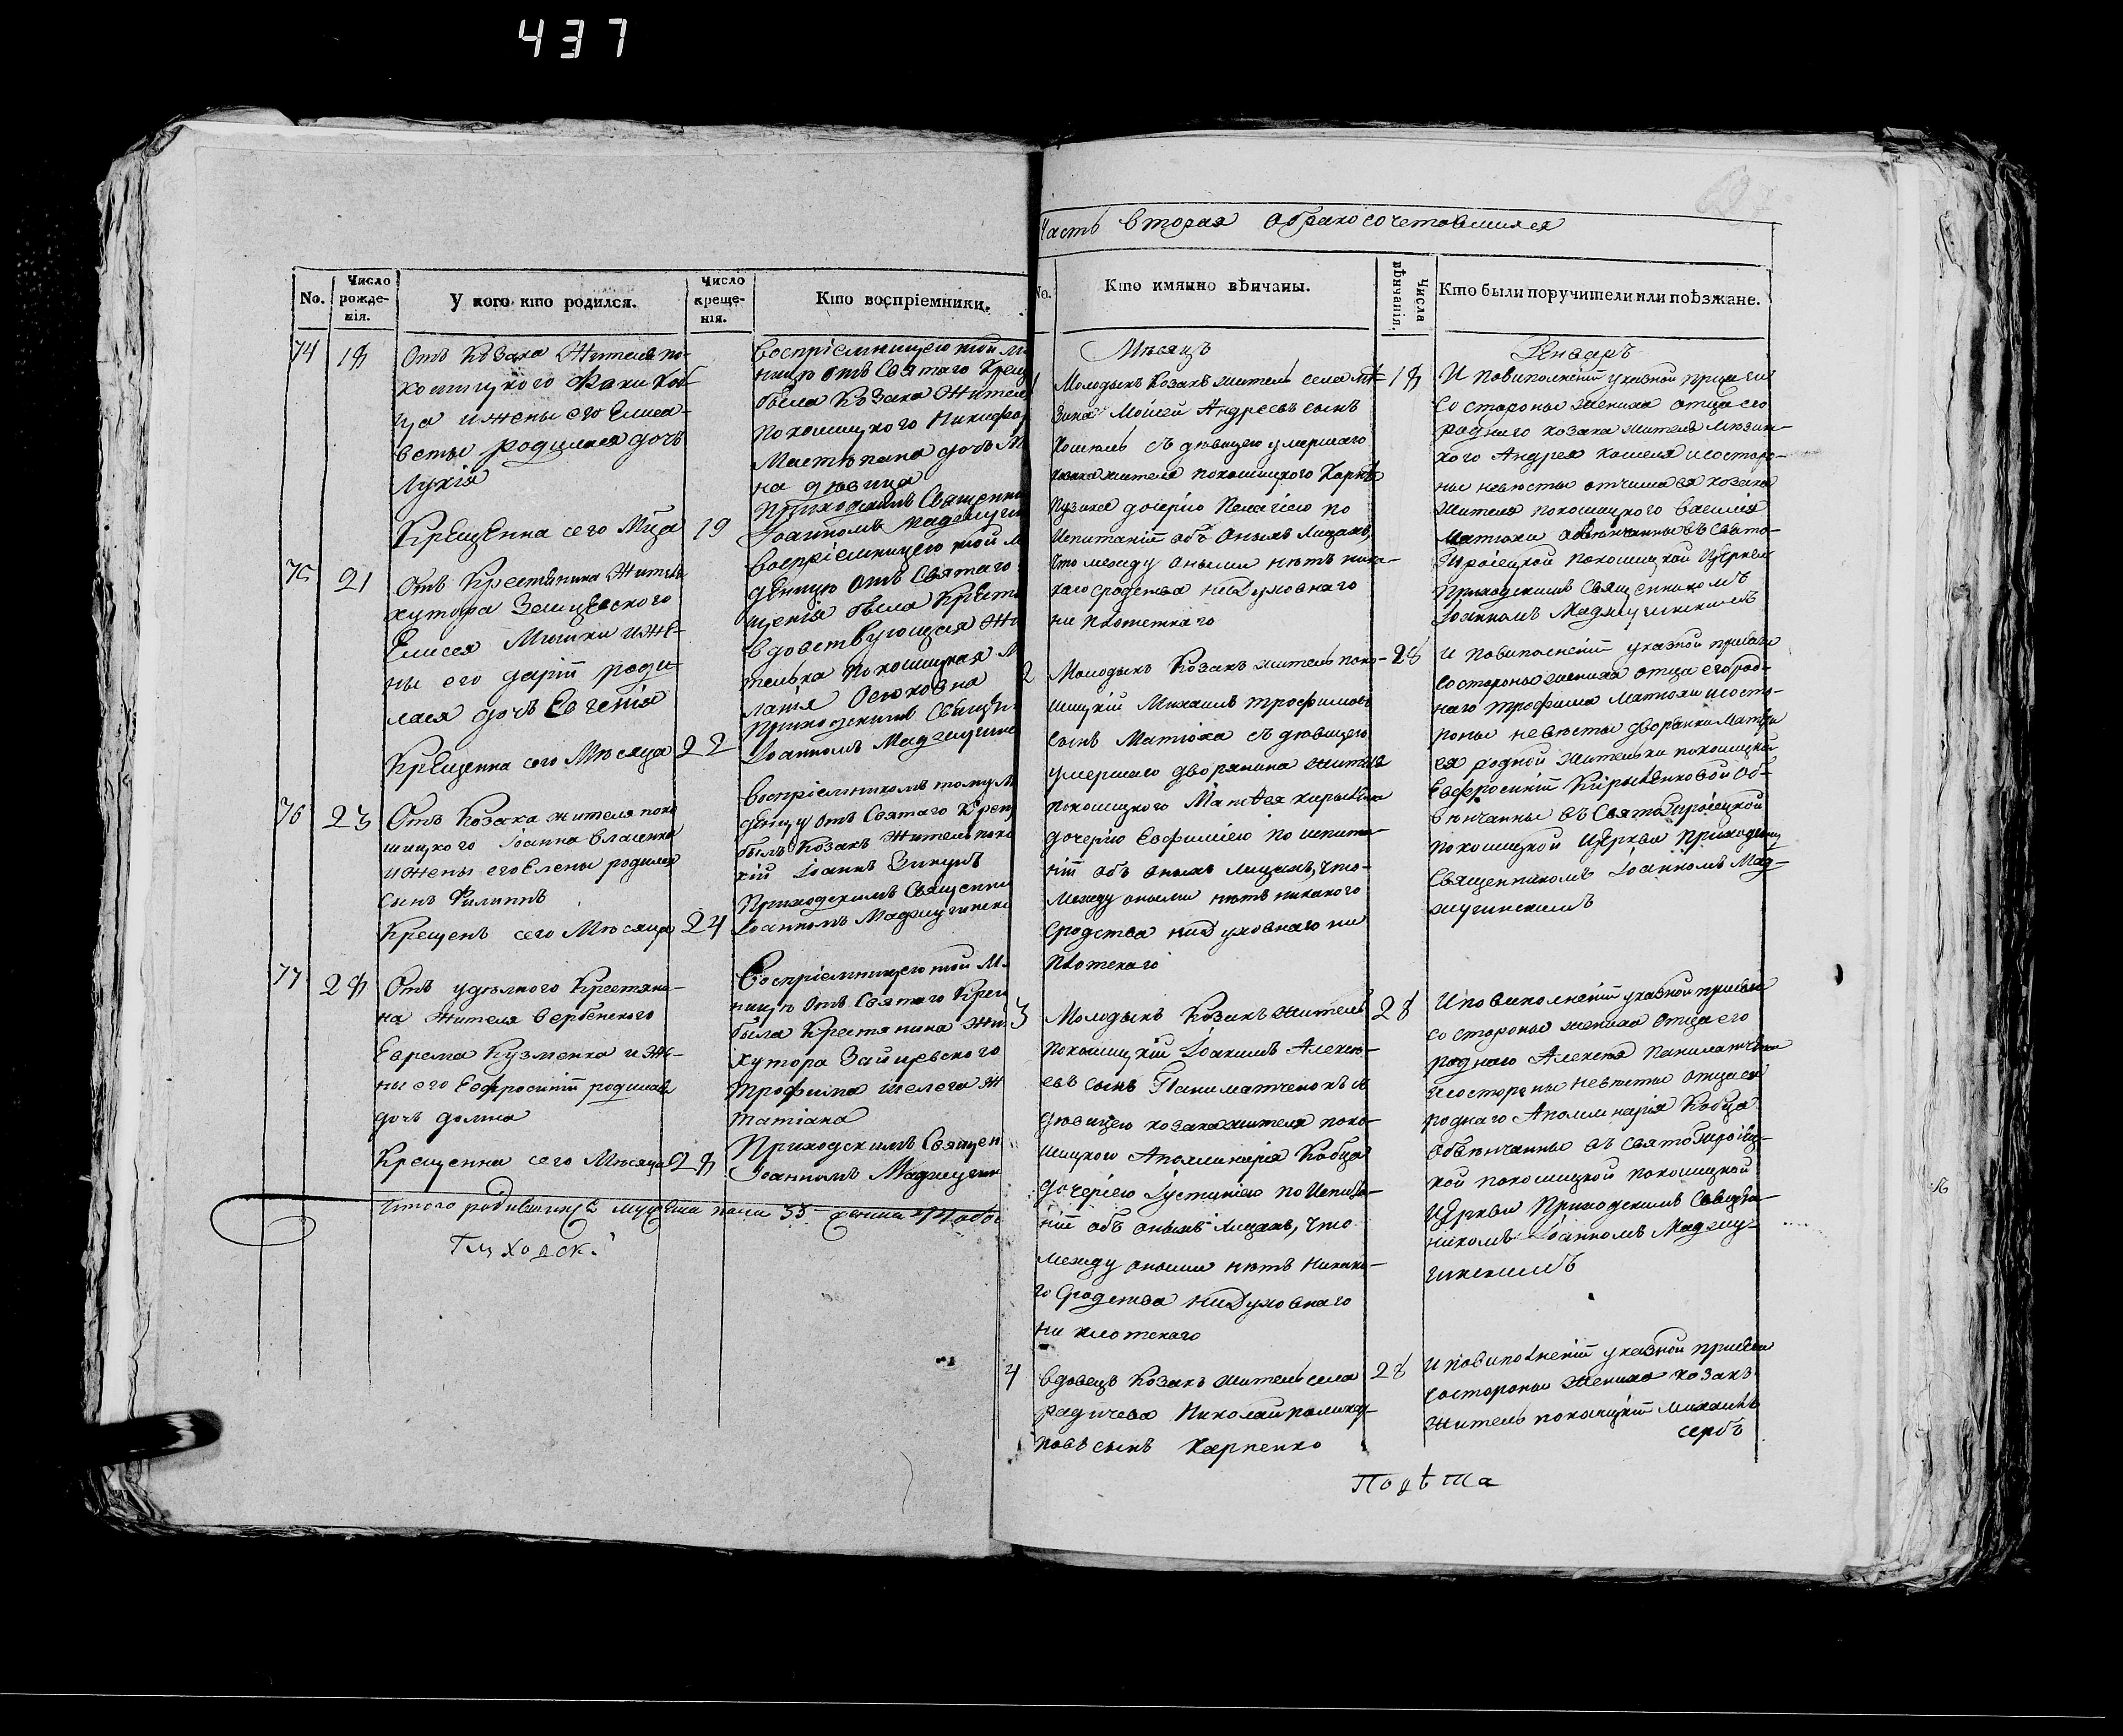 437
No.
Число рожде-нія.
У кого кто родился.
Число креще-нія.
Кто воспріемники.
74
18
Отъ козака жителя по-
кошицкого Фоки Коб-
ца и жены его Елиса-
веты родилася дочъ
Лукія
Крещенна сего Мца
19
воспріемницею той м
ницъ отъ Святаго Крещ
была козака жителя
покошицкого Никифор
дочъ М
на девица
Приходскимъ Священни
Іоанномъ
75
21
Отъ Крестянина жителя
хутора
Елисея Мышки и же-
ны его Дарiи роди-
лася дочъ Евгенія
Крещенна сего Мѣсяца
22
воспріемницею той м
денцу отъ Святаго
щенія была Кресте
вдовствующая жи
телька покошицкая М
ланія
Приходскимъ Священ
Іоанномъ Маджугинс
76
23
Отъ Козака жителя поко
шицкого Іоанна Власенка
и жены его Елены родился
сынъ Филиппъ
Крещенъ сего Мѣсяца
24
Воспріемникомъ тому м
денцу отъ Святаго Крещ
былъ Козакъ жителъ поко
кій Іоаннъ
Приходскимъ Священни
Іоанномъ Маджугинск
77
28
Отъ удѣлного Крестяни-
на жителя вербенского
Еврема Кузменка и же-
ны его Евфросиніи родилас
дочъ Домна
Крещенна сего Мѣсяца
28
Воспріемницею той М
ницъ отъ Святаго Крещ
была Крестянина жи
хутора Зайцевского
Трофима
Татіана
Приходскимъ Священ
Іоанномъ Маджугин
Итого родившихся мужеска пола 35 женска
Часть вторая о бракосочетавшихся
No.
Кто имянно вѣнчаны.
Числа вѣнчанія.
Кто были поручители или поѣзжане.
Мѣсяцъ
Генваръ
1
Молодыкъ Козакъ житель села мѣ-
зина Моисей Андреевъ сынъ
Кошель съ дѣвицею умершаго
козака жителя покошицкого
Пузака дочерію Пелагіею по
испитаніи объ оныхъ лицахъ,
что между оными нѣтъ ника-
кого сродства ни Духовнаго
ни плотскаго
18
И повиполненіи указной присяги
со стороны жениха отца его
роднаго козака жителя мезин-
кого Андрея Кошеля и со сторо-
ны невѣсты отчима ея козака
жителя покошицкого Василія
Матюхи обвѣнчанны въ Свято-
Троіецкой покошицкой церкви
Приходскимъ Священникомъ
Іоанномъ Маджугинскимъ
2
Молодыкъ Козакъ житель поко-
шицкій Михаилъ Трофимовъ
сынъ Матюха съ дѣвицею
умершаго дворянина жителя
покошицкого Матѳея
дочерію Евфиміею по испита-
ніи объ оныхъ лицахъ, что-
между оными нѣтъ никакого
сродства ни Духовнаго ни
плотскаго
28
и повиполненіи указной присяги
со стороны жениха отца его род-
наго Трофима Матюхи и со сто-
роны невѣсты дворянки матери
ея родной жительки покошицкой
Евфросиніи Кирыленковой об-
вѣнчанны въ Святотроіецкой
покошицкой церкви Приходским
Священникомъ Іоанномъ Мад-
жугинскимъ
3
Молодыкъ Козакъ житель
покошицкій Іоакимъ Алексѣ-
евъ сынъ Паниматченокъ съ
дѣвицею козака жителя поко-
шицкого Аполлинарія Кобца
дочеріею Іустиніею по испита-
ніи объ оныхъ лицахъ, что
между оными нѣтъ никако-
го сродства ни Духовнаго
ни плотскаго
28
И повиполненіи указной присяги
со стороны жениха отца его
роднаго Алексѣя Паниматченка
и со стороны невѣсты отца ея
роднаго Аполлинарія Кобца
обвѣнчанны въ Святотроіец-
кой покошицкой покошицкой
церкви Приходскимъ Священ-
никомъ Іоанномъ Маджу-
гинскимъ
4
вдовецъ Козакъ житель села
радичева Николай поликар-
повъ сынъ Карпенко
28
и повиполненіи указной присяги
со стороны жениха козакъ
житель покошицкій Михаилъ
сербъ